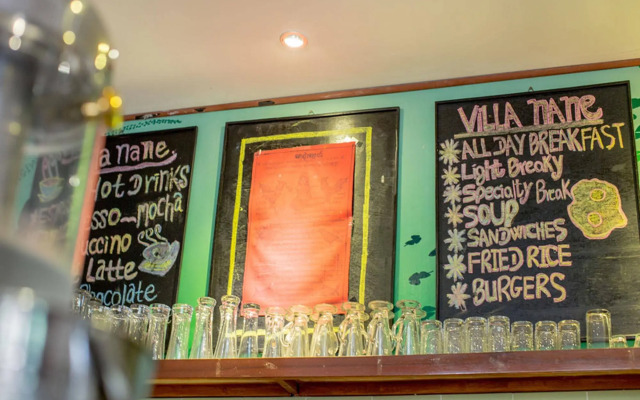 a nane
Hot Drinks
sso mocha
uccino
Latte
Chocolate
VILLA NANE
ALL DAY BREAKFAST
Light Breaky
Specialty Break
SOUP
SANDWICHES
FRIED RICE
BURGERS